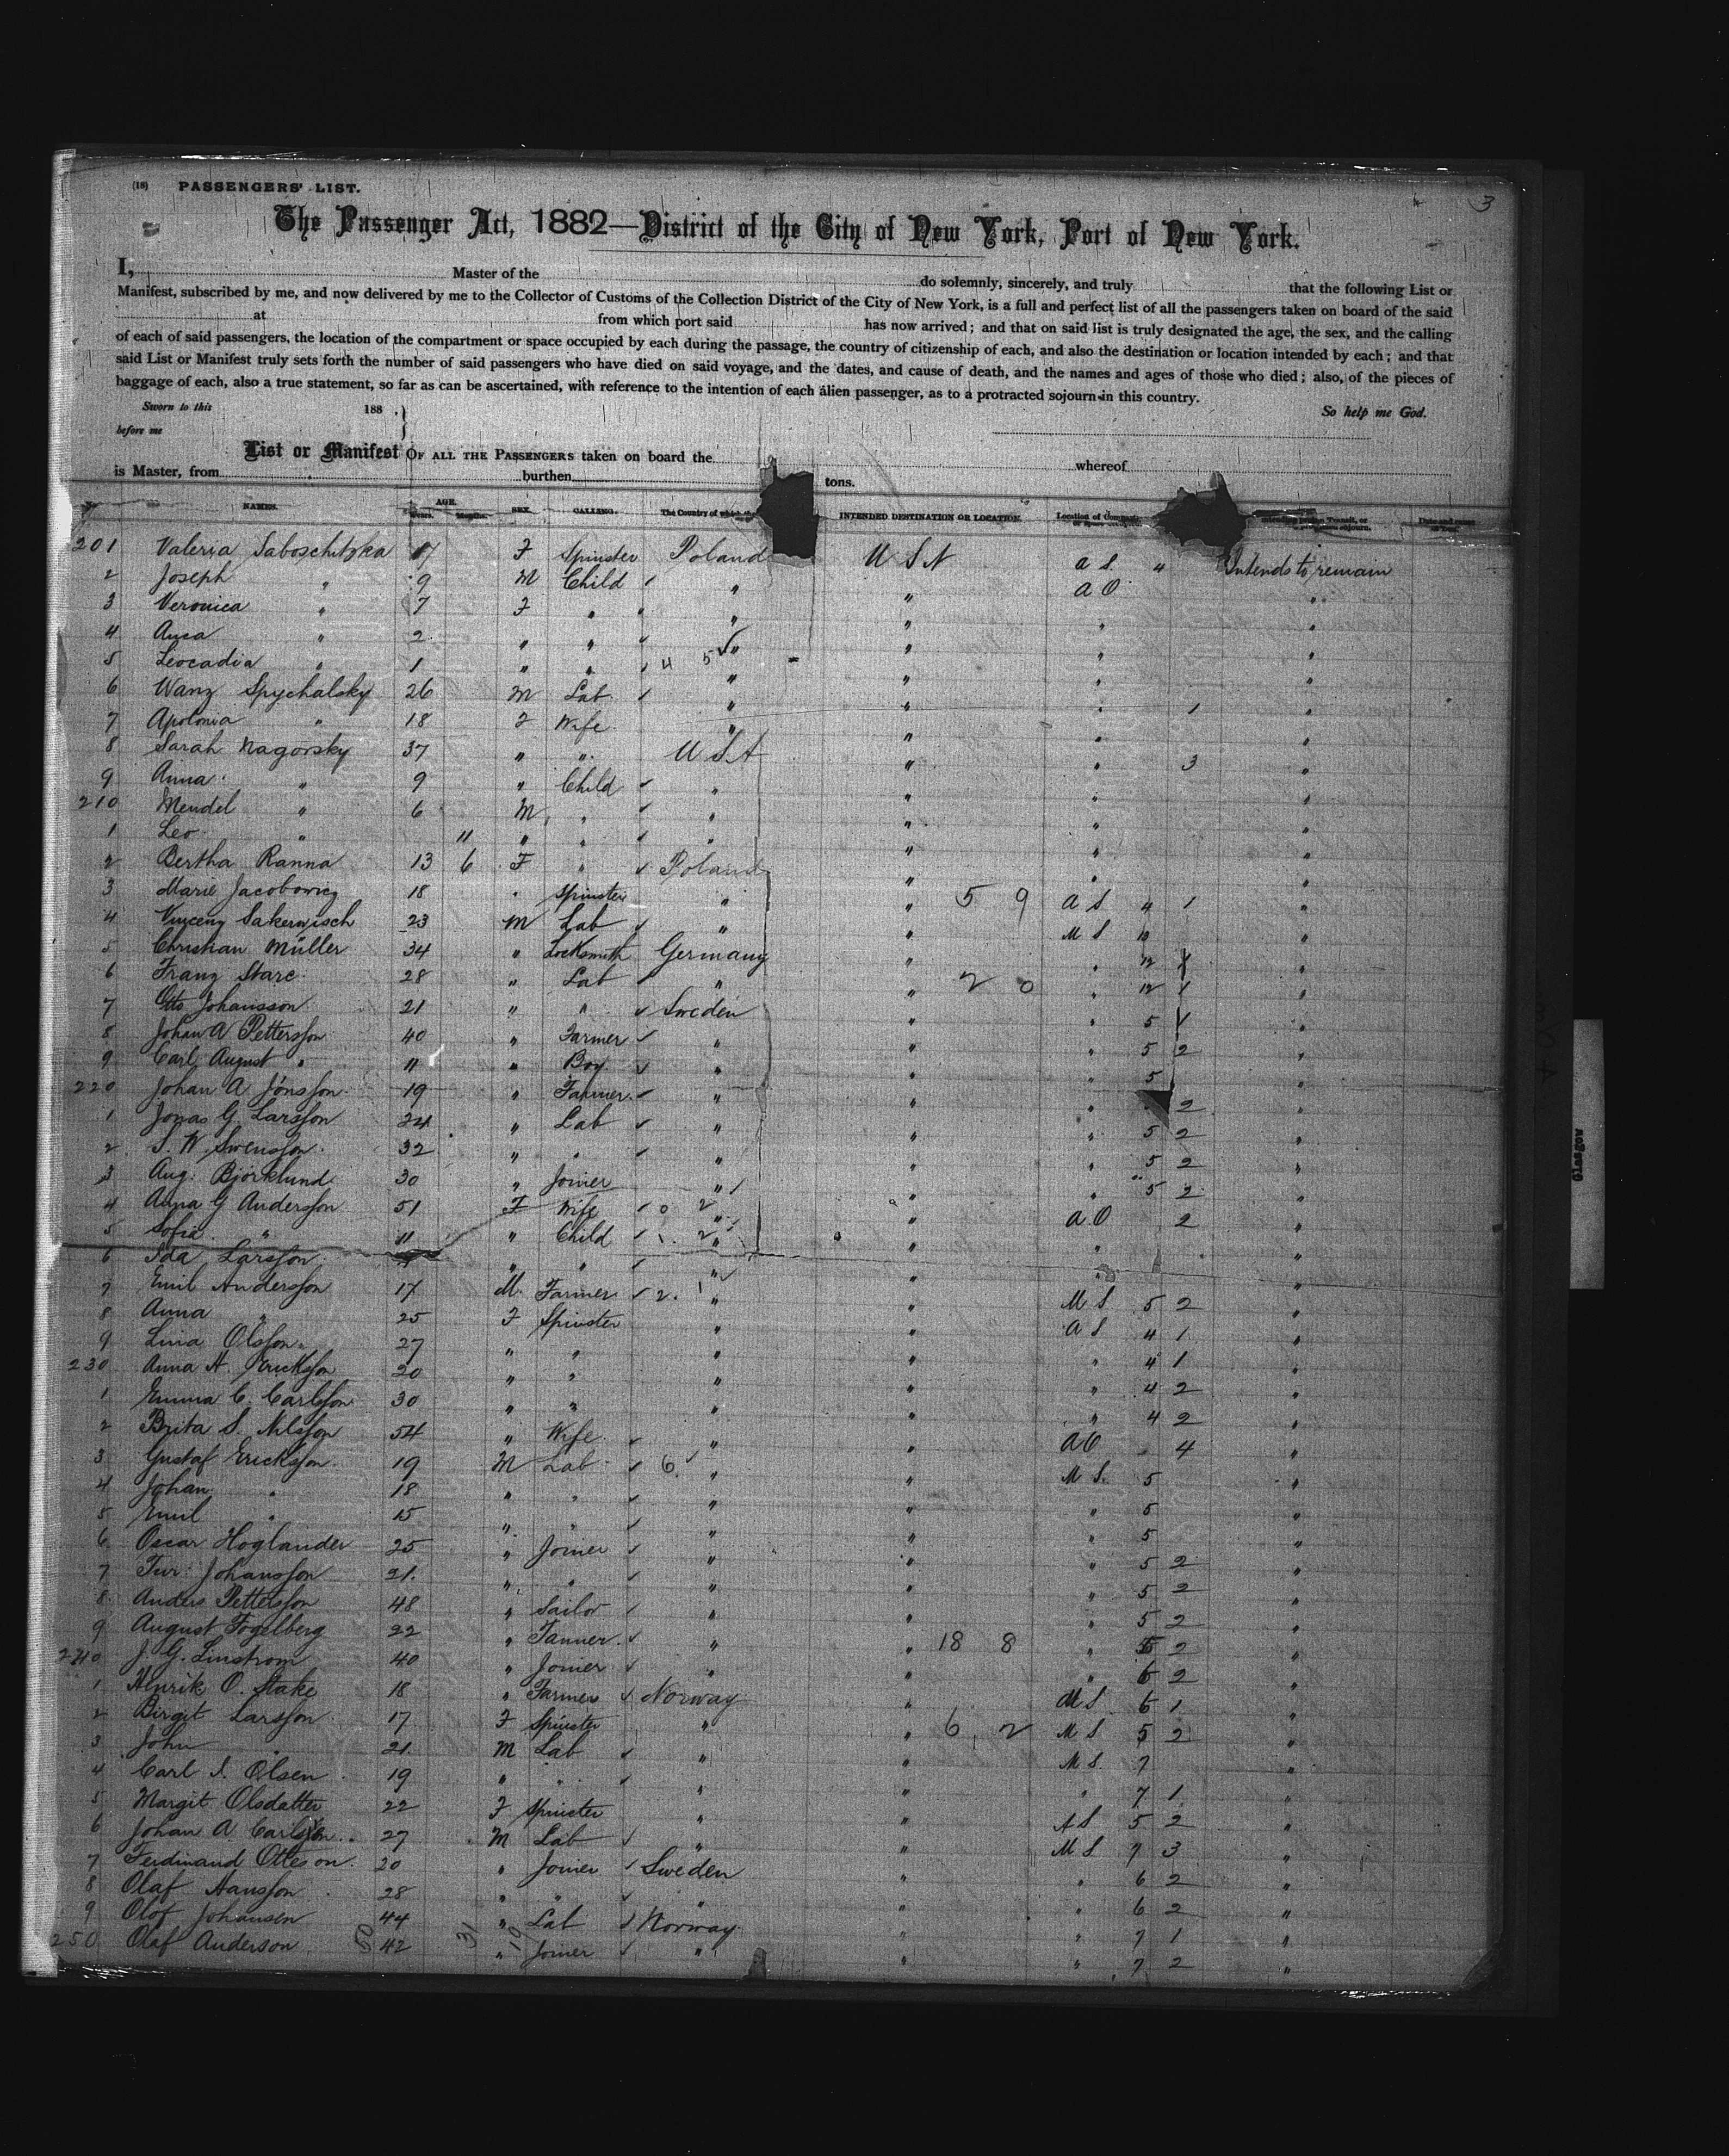 (18) PASSENGERS' LIST.
3
The Passenger Act, 1882—District of the City of New York, Port of New York.
I, Master of the do solemnly, sincerely, and truly that the following List or
Manifest, subscribed by me, and now delivered by me to the Collector of Customs of the Collection District of the City of New York, is a full and perfect list of all the passengers taken on board of the said
at from which port said has now arrived; and that on said list is truly designated the age, the sex, and the calling
of each of said passengers, the location of the compartment or space occupied by each during the passage, the country of citizenship of each, and also the destination or location intended by each; and that
said List or Manifest truly sets forth the number of said passengers who have died on said voyage, and the dates, and cause of death, and the names and ages of those who died; also, of the pieces of
baggage of each, also a true statement, so far as can be ascertained, with reference to the intention of each alien passenger, as to a protracted sojourn in this country.
Sworn to this 188 . } So help me God.
before me
List or Manifest OF ALL THE PASSENGERS taken on board the whereof
is Master, from burthen tons.
NAMES. AGE. Years. Months. SEX. CALLING. The Country of which INTENDED DESTINATION OR LOCATION. Location of
201 Valeria Saboschitzka 17 F Spinster Poland U S A a S 4 Intends to remain
2 Joseph " 9 M Child " " a O "
3 Veronica " 7 F " " " " "
4 Anna " 2 " " " " " "
5 Leocadia " 1 " " 4 5 " " " "
6 Wanz Spychalsky 26 M Lab " " " 1 "
7 Apolonia " 18 F Wife " " " "
8 Sarah Nagorsky 37 " " U S A " " 3 "
9 Anna " 9 " Child " " " "
210 Mendel " 6 M " " " " "
1 Leo " 11 " " " " " "
2 Bertha Ranna 13 6 F " Poland " " "
3 Marie Jacobowicz 18 " Spinster " " 5 9 a S 4 1 "
4 Sakerwisch 23 M Lab " " M S 12 "
5 Christian Müller 34 " Locksmith Germany " " 12 1 "
6 Franz Starc 28 " Lab " " 2 0 " 12 1 "
7 Otto Johansson 21 " " Sweden " " 5 1 "
8 Johan A Pettersson 40 " Farmer " " " 5 2 "
9 Carl August " 11 " Boy " " " 5 "
220 Johan A Jónsson 19 " Farmer " " " 2 "
1 Jonas G. Larsson 24 " Lab " " " 5 2 "
2 S. W. Swensson 32 " " " " " 5 2 "
3 Aug. Björklund 30 " Joiner " " " 5 2 "
4 Anna G Andersson 51 F Wife 0 2 " " a O 2 "
5 Sofia " 11 " Child 1. 2 " " " "
6 Ida Larsson " " " " " "
7 Emil Andersson 17 M Farmer 2. 1 " " M S 5 2 "
8 Anna " 25 F Spinster " " a S 4 1 "
9 Lina Olsson 27 " " " " " 4 1 "
230 Anna H. Ericksson 20 " " " " " 4 2 "
1 Emma C. Carlsson 30 " " " " " 4 2 "
2 Brita S. Nilsson 54 " Wife " " a O 4 "
3 Gustaf Ericksson 19 M Lab 6 " " M S. 5 "
4 Johan " 18 " " " " " 5 "
5 Emil " 15 " " " " " 5 "
6 Oscar Hoglander 25 " Joiner " " " 5 2 "
7 Johansson 21. " " " " " 5 2 "
8 Anders Pettersson 48 " Sailor " " " 5 2 "
9 August Fogelberg 22 " Tanner " " 18 8 " 5 2 "
240 J. G. Linstrom 40 " Joiner " " " 6 2 "
1 Henrik O. Stake 18 " Farmer Norway " M S 6 1 "
2 Birgit Larsson 17 F Spinster " " 6 2 M S 5 2 "
3 John " 21. M Lab " " M S. 7 "
4 Carl I. Olsen 19 " " " " " 7 1 "
5 Margit Olsdatter 22 F Spinster " " A S 5 2 "
6 Johan A Carlson 27 M Lab " " M S 7 3 "
7 Ferdinand Otteson 20 " Joiner Sweden " " 6 2 "
8 Olaf Hansson 28 " " " " " 6 2 "
9 Olof Johansen 44 " Lab Norway " " 7 1 "
250 Olaf Anderson 50 42 31 19 " Joiner " " " 7 2 "
Glasgow